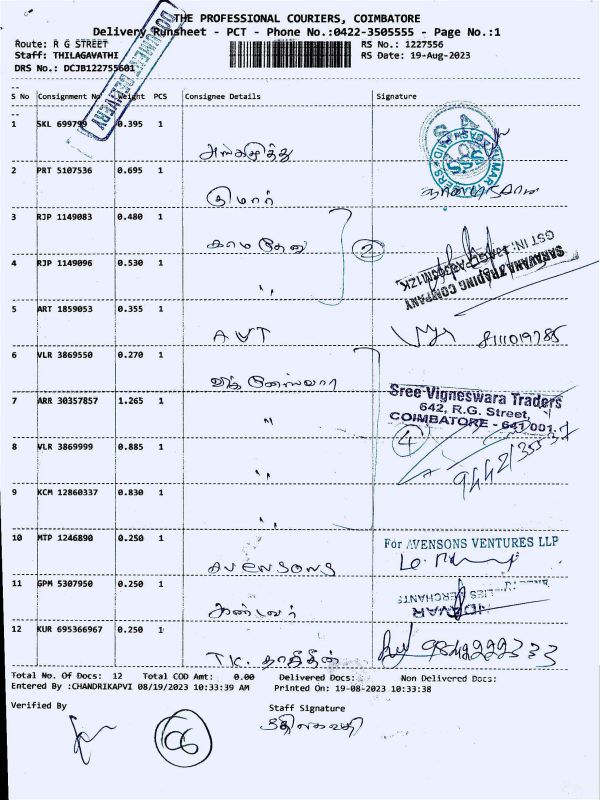 THE PROFESSIONAL COURIERS, COIMBATORE
Delivery Runsheet - PCT - Phone No.:0422-3505555 - Page No.:1
Route: R G STREET
RS No.: 1227556
Staff: THILAGAVATHI
RS Date: 19-Aug-2023
DRS No.: DCJB122755601
DOCUMENT DELIVERY
S No Consignment No Weight PCS Consignee Details Signature
1 SKL 699799 0.395 1
2 PRT 5107536 0.695 1
குமார்
3 RJP 1149083 0.480 1
காமதேனு
2
4 RJP 1149096 0.530 1
"
SARAVANA TRADING COMPANY
5 ART 1859053 0.355 1
AVT
8111019785
6 VLR 3869550 0.270 1
விக்னேஸ்வரா
7 ARR 30357857 1.265 1
"
Sree Vigneswara Traders
642, R.G. Street,
COIMBATORE - 641 001.
4
8 VLR 3869999 0.885 1
"
9 KCM 12860337 0.830 1
"
10 MTP 1246890 0.250 1
avensons
For AVENSONS VENTURES LLP
11 GPM 5307950 0.250 1
12 KUR 695366967 0.250 1
T.K.
9842222333
Total No. Of Docs: 12 Total COD Amt: 0.00 Delivered Docs: Non Delivered Docs:
Entered By :CHANDRIKAPVI 08/19/2023 10:33:39 AM Printed On: 19-08-2023 10:33:38
Verified By
Staff Signature
06